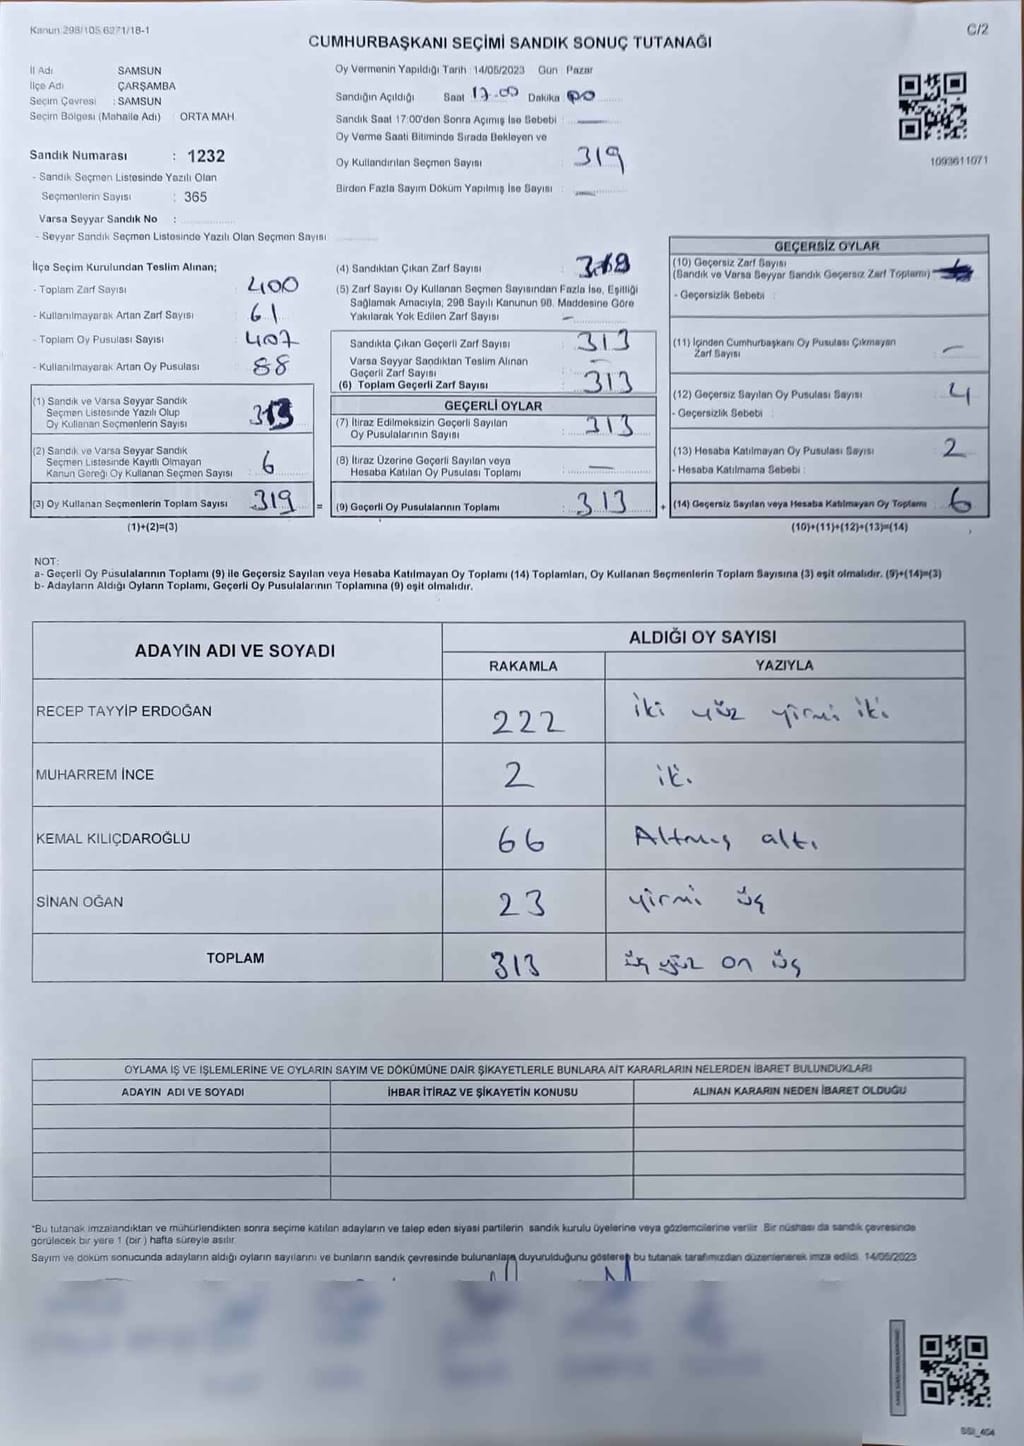 Kanun 298/105 6271/18-1
C/2
CUMHURBAŞKANI SEÇİMİ SANDIK SONUÇ TUTANAĞI
İl Adı SAMSUN
İlçe Adı ÇARŞAMBA
Seçim Çevresi : SAMSUN
Seçim Bölgesi (Mahalle Adı) ORTA MAH.
Sandık Numarası : 1232
- Sandık Seçmen Listesinde Yazılı Olan
Seçmenlerin Sayısı : 365
Varsa Seyyar Sandık No :
- Seyyar Sandık Seçmen Listesinde Yazılı Olan Seçmen Sayısı
Oy Vermenin Yapıldığı Tarih 14/05/2023 Gün Pazar
Sandığın Açıldığı Saat 17.00 Dakika 00
Sandık Saat 17:00'den Sonra Açımış İse Sebebi : —
Oy Verme Saati Bitiminde Sırada Bekleyen ve
Oy Kullandırılan Seçmen Sayısı : 319
Birden Fazla Sayım Döküm Yapılmış İse Sayısı : —
1093611071
İlçe Seçim Kurulundan Teslim Alınan;
- Toplam Zarf Sayısı : 400
- Kullanılmayarak Artan Zarf Sayısı : 61
- Toplam Oy Pusulası Sayısı : 407
- Kullanılmayarak Artan Oy Pusulası : 88
(1) Sandık ve Varsa Seyyar Sandık
Seçmen Listesinde Yazılı Olup
Oy Kullanan Seçmenlerin Sayısı : 313
(2) Sandık ve Varsa Seyyar Sandık
Seçmen Listesinde Kayıtlı Olmayan
Kanun Gereği Oy Kullanan Seçmen Sayısı : 6
(3) Oy Kullanan Seçmenlerin Toplam Sayısı : 319 =
(1)+(2)=(3)
(4) Sandıktan Çıkan Zarf Sayısı :
(5) Zarf Sayısı Oy Kullanan Seçmen Sayısından Fazla İse, Eşitliği
Sağlamak Amacıyla; 298 Sayılı Kanunun 98. Maddesine Göre
Yakılarak Yok Edilen Zarf Sayısı : —
Sandıkta Çıkan Geçerli Zarf Sayısı : 313
Varsa Seyyar Sandıktan Teslim Alınan
Geçerli Zarf Sayısı : —
(6) Toplam Geçerli Zarf Sayısı : 313
GEÇERLİ OYLAR
(7) İtiraz Edilmeksizin Geçerli Sayılan
Oy Pusulalarının Sayısı : 313
(8) İtiraz Üzerine Geçerli Sayılan veya
Hesaba Katılan Oy Pusulası Toplamı : —
(9) Geçerli Oy Pusulalarının Toplamı : 313 +
GEÇERSİZ OYLAR
(10) Geçersiz Zarf Sayısı
(Sandık ve Varsa Seyyar Sandık Geçersiz Zarf Toplamı)
- Geçersizlik Sebebi :
(11) İçinden Cumhurbaşkanı Oy Pusulası Çıkmayan
Zarf Sayısı : —
(12) Geçersiz Sayılan Oy Pusulası Sayısı : 4
- Geçersizlik Sebebi :
(13) Hesaba Katılmayan Oy Pusulası Sayısı : 2
- Hesaba Katılmama Sebebi :
(14) Geçersiz Sayılan veya Hesaba Katılmayan Oy Toplamı : 6
(10)+(11)+(12)+(13)=(14)
NOT:
a- Geçerli Oy Pusulalarının Toplamı (9) ile Geçersiz Sayılan veya Hesaba Katılmayan Oy Toplamı (14) Toplamları, Oy Kullanan Seçmenlerin Toplam Sayısına (3) eşit olmalıdır. (9)+(14)=(3)
b- Adayların Aldığı Oyların Toplamı, Geçerli Oy Pusulalarının Toplamına (9) eşit olmalıdır.
ADAYIN ADI VE SOYADI ALDIĞI OY SAYISI
RAKAMLA YAZIYLA
RECEP TAYYİP ERDOĞAN 222 iki yüz yirmi iki
MUHARREM İNCE 2 iki
KEMAL KILIÇDAROĞLU 66 Altmış altı
SİNAN OĞAN 23 yirmi üç
TOPLAM 313 üç yüz on üç
OYLAMA İŞ VE İŞLEMLERİNE VE OYLARIN SAYIM VE DÖKÜMÜNE DAİR ŞİKAYETLERLE BUNLARA AİT KARARLARIN NELERDEN İBARET BULUNDUKLARI
ADAYIN ADI VE SOYADI İHBAR İTİRAZ VE ŞİKAYETİN KONUSU ALINAN KARARIN NEDEN İBARET OLDUĞU
*Bu tutanak imzalandıktan ve mühürlendikten sonra seçime katılan adayların ve talep eden siyasi partilerin sandık kurulu üyelerine veya gözlemcilerine verilir. Bir nüshası da sandık çevresinde
görülecek bir yere 1 (bir ) hafta süreyle asılır.
Sayım ve döküm sonucunda adayların aldığı oyların sayılarını ve bunların sandık çevresinde bulunanlara duyurulduğunu gösteren bu tutanak tarafımızdan düzenlenerek imza edildi. 14/05/2023
SSI_404